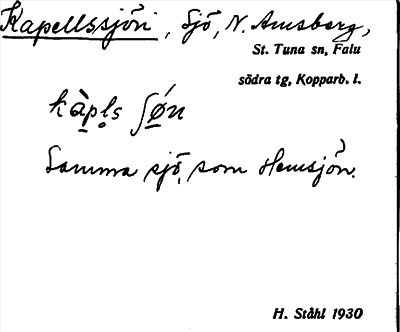 Kapellssjön, Sjö, N. Amsberg,
St. Tuna sn, Falu
södra tg, Kopparb. l.
kàpl̥s ʃǿn
Samma sjö, som Hemsjön.
H. Ståhl 1930